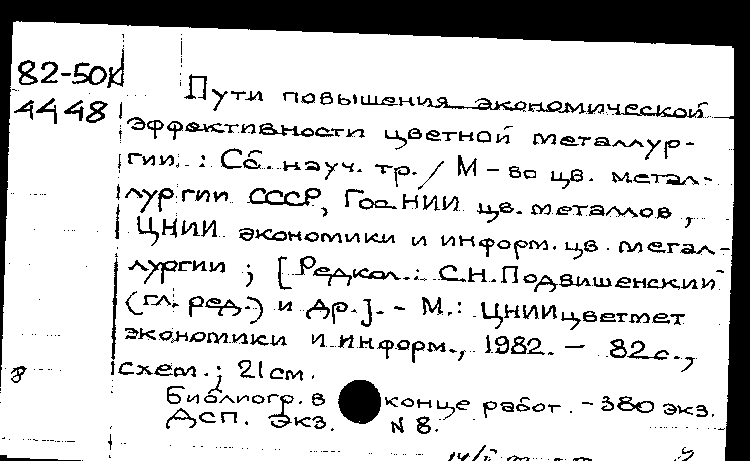 82-50К
4448
Пути повышения экономической
эффективности цветной металлур-
гии. : Сб. науч. тр. / М-во цв. метал-
лургии СССР, ГосНИИ цв. металлов,
ЦНИИ экономики и информ. цв. метал-
лургии ; [Редкол.: С.Н.Подвишенский
(гл. ред.) и др.]. - М.: ЦНИИцветмет
экономики и информ., 1982. - 82с.,
8 схем.; 21см.
Библиогр. в конце работ. - 380 экз.
ДСП. Экз. N 8.